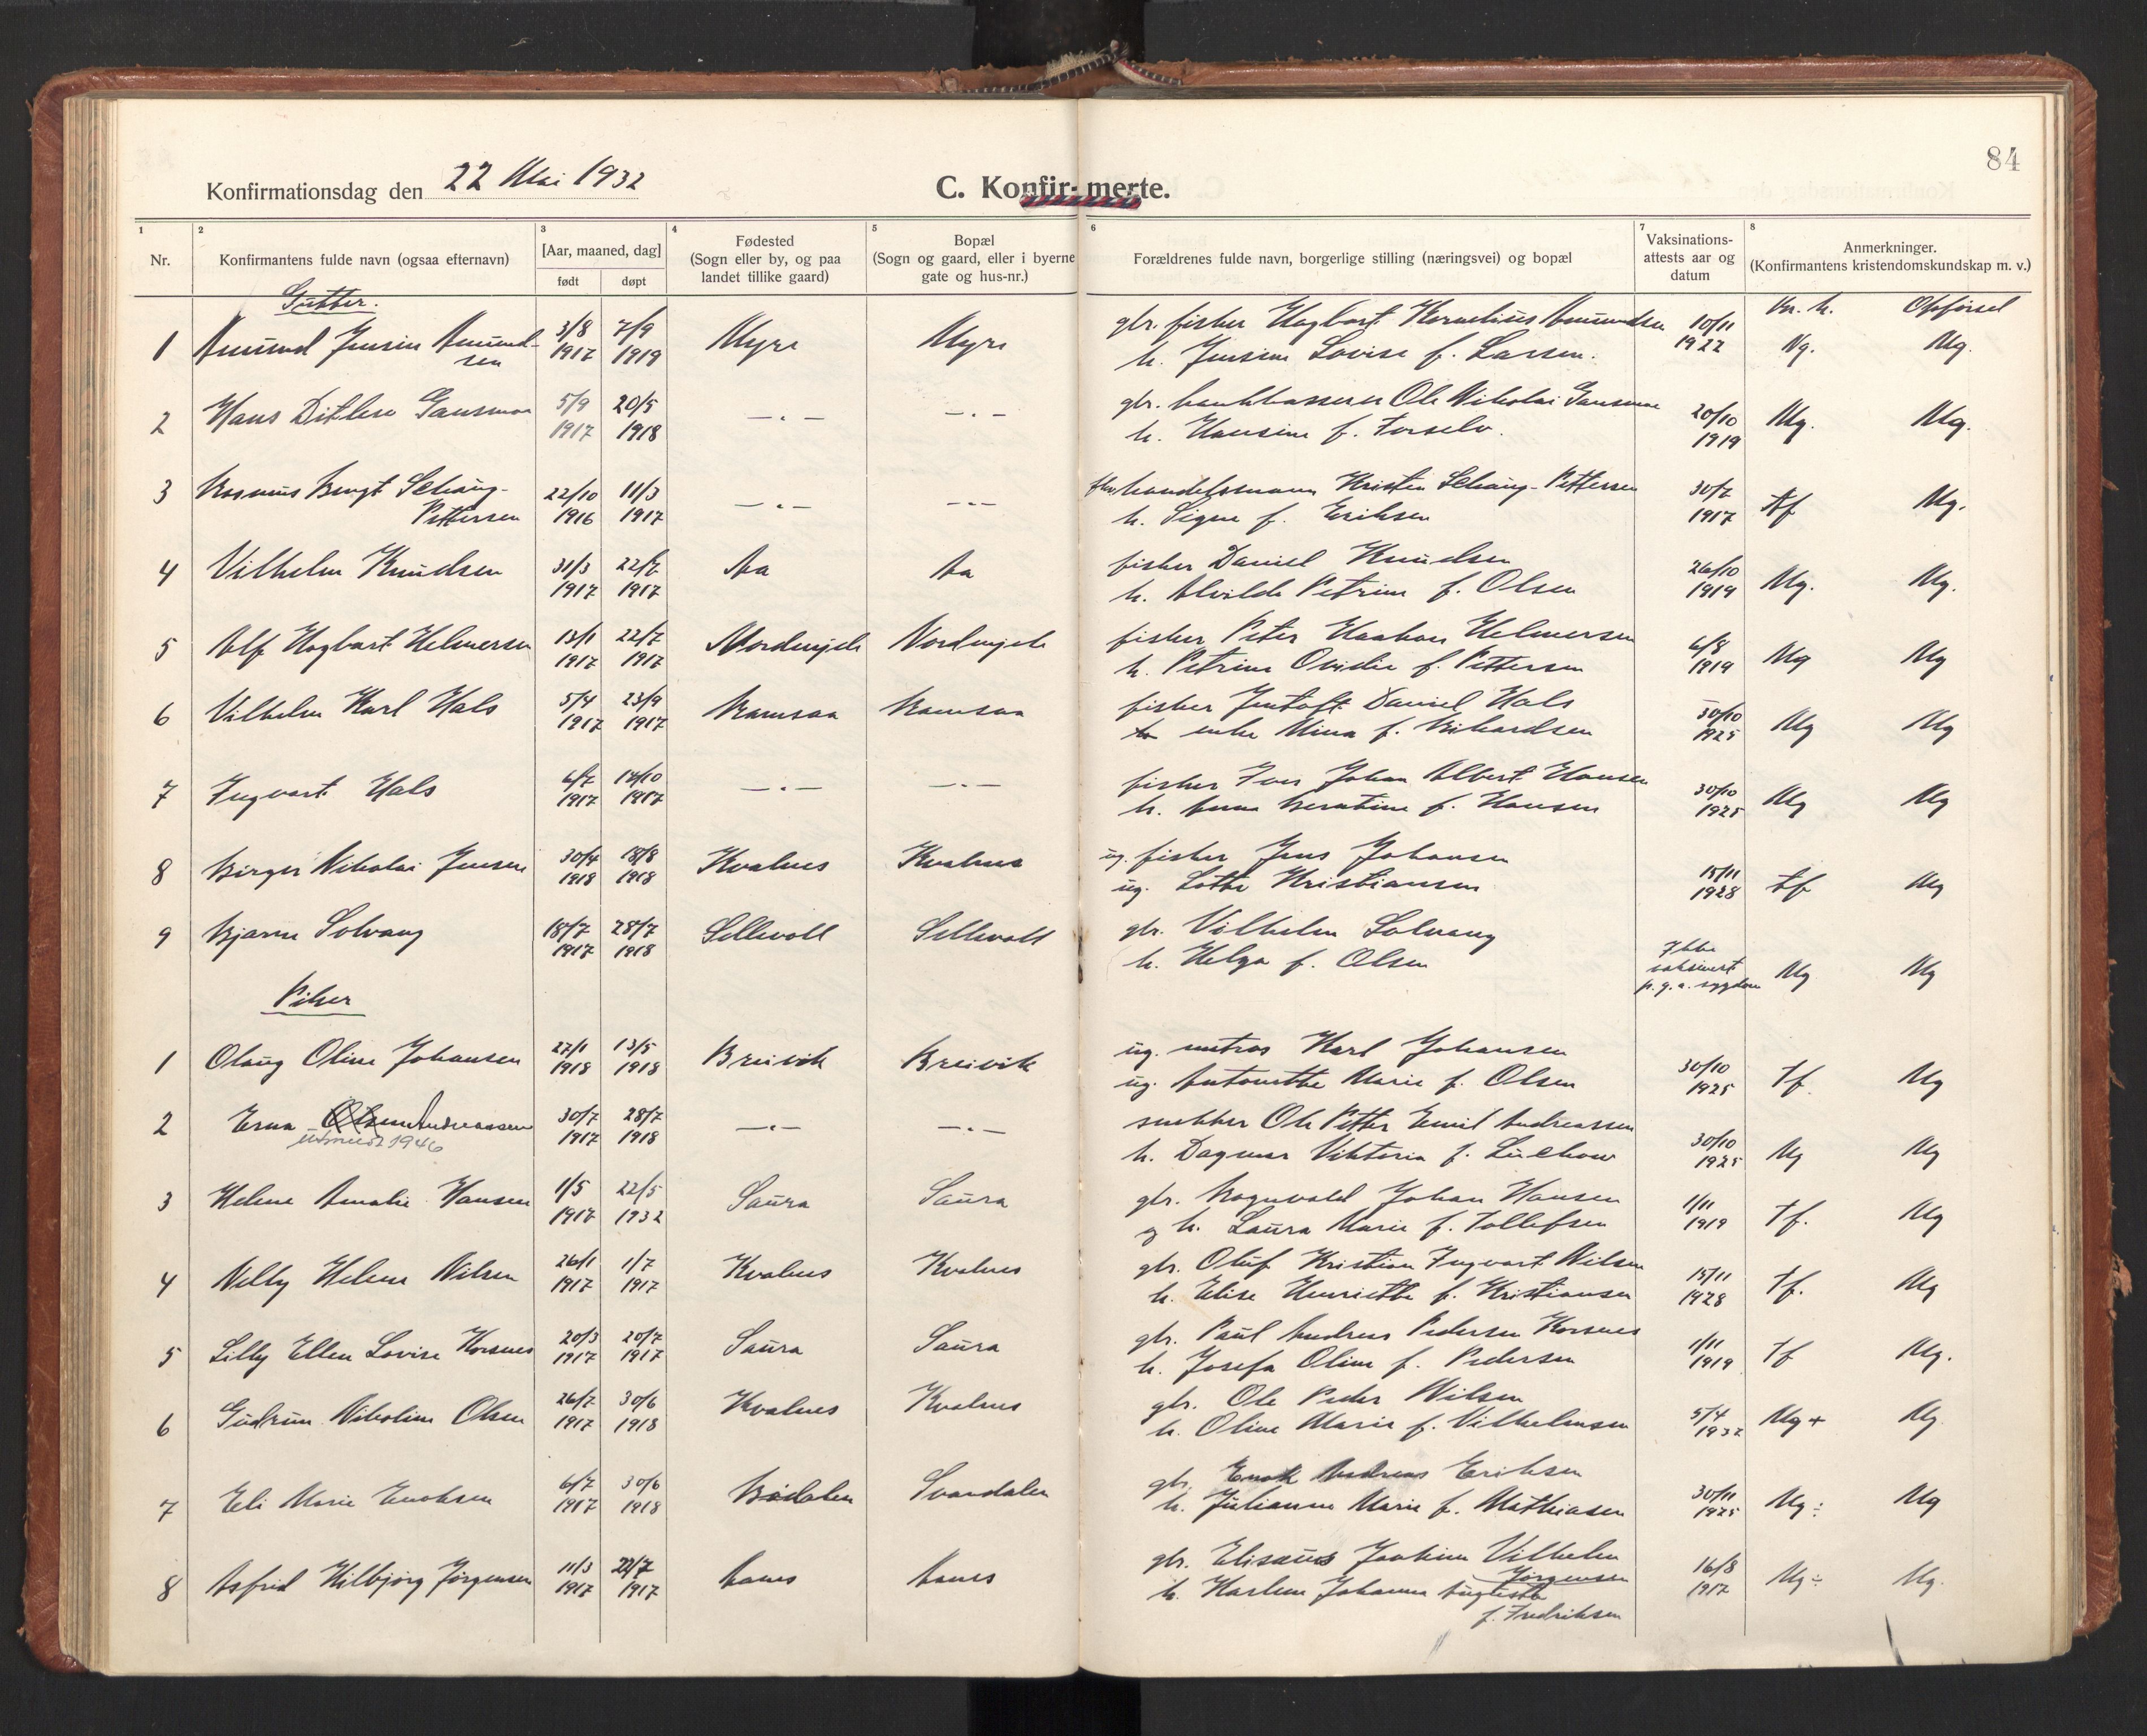 84
Konfirmationsdag den 22 Mai 1932
C. Konfir- merte.
1 2 3 4 5 6 7 8
Nr.
Konfirmantens fulde navn (ogsaa efternavn)
[Aar, maaned, dag]
født døpt
Fødested
(Sogn eller by, og paa
landet tillike gaard)
Bopæl
(Sogn og gaard, eller i byerne
gate og hus-nr.)
Forældrenes fulde navn, borgerlige stilling (næringsvei) og bopæl
Vaksinations-
attests aar og
datum
Anmerkninger.
(Konfirmantens kristendomskundskap m. v.)
Gutter.
Kr. k. Opførsel
1 Amund Jensin Amund- 3/8 7/9 Myre Myre gbr. fisker Hagbart Kornelius Amundsen 10/11 Ng. Mg.
sen 1917 1919 h. Jensine Lovise f. Larsen. 1922
2 Hans Ditlese Gansmoe 5/9 20/5 —.— —.— gbr. bankkasserer Ole Nikolai Gansmoe 20/10 Mg. Mg.
1917 1918 h. Hansine f. Forselv. 1919
3 Rasmus Bengt Schaug- 22/10 11/3 —.— —.— handelsmann Kristen Schaug-Pettersen 30/7 Tf Mg.
Pettersen 1916 1917 h. Signe f. Eriksen 1917
4 Vilhelm Knudsen 31/3 22/7 Aa Aa fisker Daniel Knudsen 26/10 Mg. Mg.
1917 1917 h. Alvilde Petrine f. Olsen 1919
5 Alf Hagbart Helmersen 13/1 22/7 Nordmjele Nordmjele fisker Peter Haakon Helmersen 6/8 Mg Mg
1917 1917 h. Petrine Ovidie f. Pettersen 1919
6 Vilhelm Karl Hals 5/4 23/9 Ramsaa Ramsaa fisker Jentoft Daniel Hals 30/10 Mg Mg
1917 1917 enke Mina f. Rikardsen 1925
7 Ingvart Hals 6/7 14/10 —.— —.— fisker Iver Johan Albert Hansen 30/10 Mg Mg
1917 1917 h. Anna Beratine f. Hansen 1925
8 Birger Nikolai Jensen 30/4 18/8 Kvalnes Kvalnes ug. fisker Jens Johansen 15/11 tf Mg
1918 1918 ug. Lotte Kristiansen 1928
9 Bjarne Solvang 18/7 28/7 Sellevoll Sellevoll gbr. Vilhelm Solvang Ikke Mg Mg
1917 1918 h. Helga f. Olsen vaksinert
p.g.a. sygdom
Piker
1 Olaug Oline Johansen 27/1 13/5 Breivik Breivik ug. matros Karl Johansen 30/10 Tf. Mg
1918 1918 ug. Antonette Marie f. Olsen 1925
2 Erna Andreassen 30/7 28/7 —.— —.— snekker Ole Petter Emil Andreassen 30/10 Mg Mg
utmeldt 1946 1917 1918 h. Dagmar Viktoria f. Luckow 1925
3 Helene Amalie Hansen 1/5 22/5 Saura Saura gbr. Ragnvald Johan Hansen 1/11 Tf. Mg
1917 1932 og h. Laura Marie f. Tollefsen 1919
4 Nelly Helene Nilsen 26/1 1/7 Kvalnes Kvalnes gbr. Oluf Kristian Ingvart Nilsen 15/11 Tf. Mg
1917 1917 h. Elise Henriette f. Kristiansen 1928
5 Lilly Ellen Lovise Korsnes 20/3 20/7 Saura Saura gbr. Paul Andreas Pedersen Korsnes 1/11 Tf Mg.
1917 1917 h. Josefa Oline f. Pedersen 1919
6 Gudrun Nikoline Olsen 26/7 30/6 Kvalnes Kvalnes gbr. Ole Peder Nilsen 5/4 Mg+ Mg
1917 1918 h. Oline Marie f. Vilhelmsen 1932
7 Eli Marie Enoksen 6/7 30/6 Bødalen Svandalen gbr. Enok Andreas Eriksen 30/11 Mg÷ Mg
1917 1918 h. Julianne Marie f. Mathiasen 1925
8 Asfrid Hilbjørg Jørgensen 11/3 22/7 Aanes Aanes gbr. Elisæus Joakim Vilhelm 16/8 Mg÷ Mg.
1917 1917 Jørgensen 1917
h. Harlene Johanna Augusta
f. Fredriksen